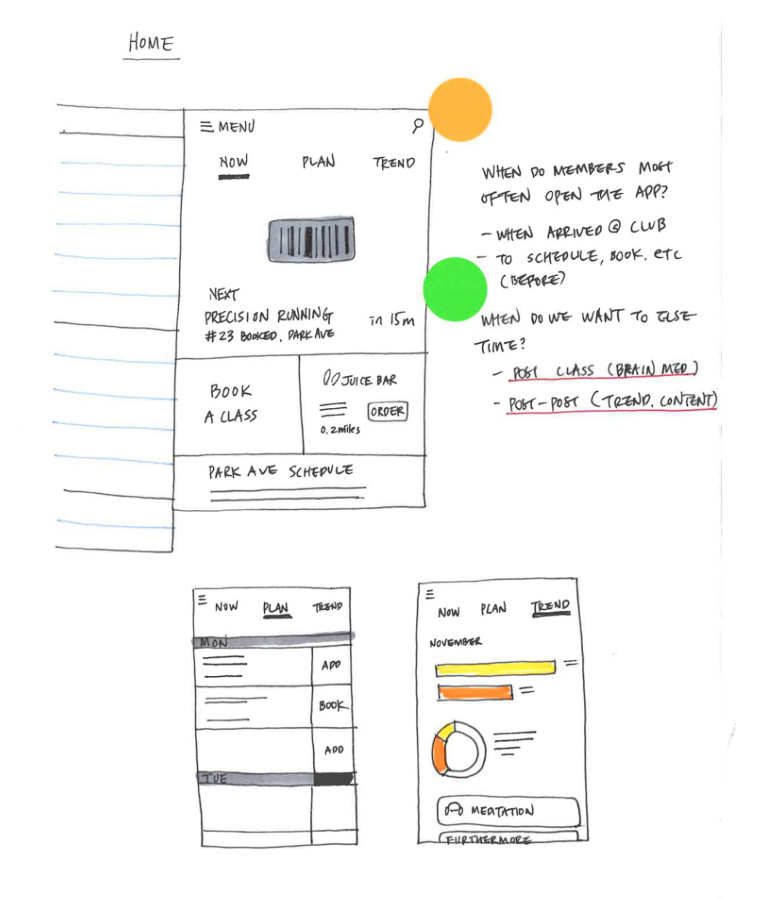 HOME
MENU
NOW PLAN TREND
NEXT
PRECISION RUNNING
#23 BOOKED, PARK AVE
in 15m
BOOK
A CLASS
JUICE BAR
ORDER
0.2 miles
PARK AVE SCHEDULE
WHEN DO MEMBERS MOST
OFTEN OPEN THE APP?
- WHEN ARRIVED @ CLUB
- TO SCHEDULE, BOOK. etc
(BEFORE)
WHEN DO WE WANT TO ELSE
TIME?
- POST CLASS (BRAIN MED)
- POST-POST (TREND, CONTENT)
NOW PLAN TREND
MON
ADD
BOOK
ADD
TUE
NOW PLAN TREND
NOVEMBER
MEDTATION
FURTHERMORE